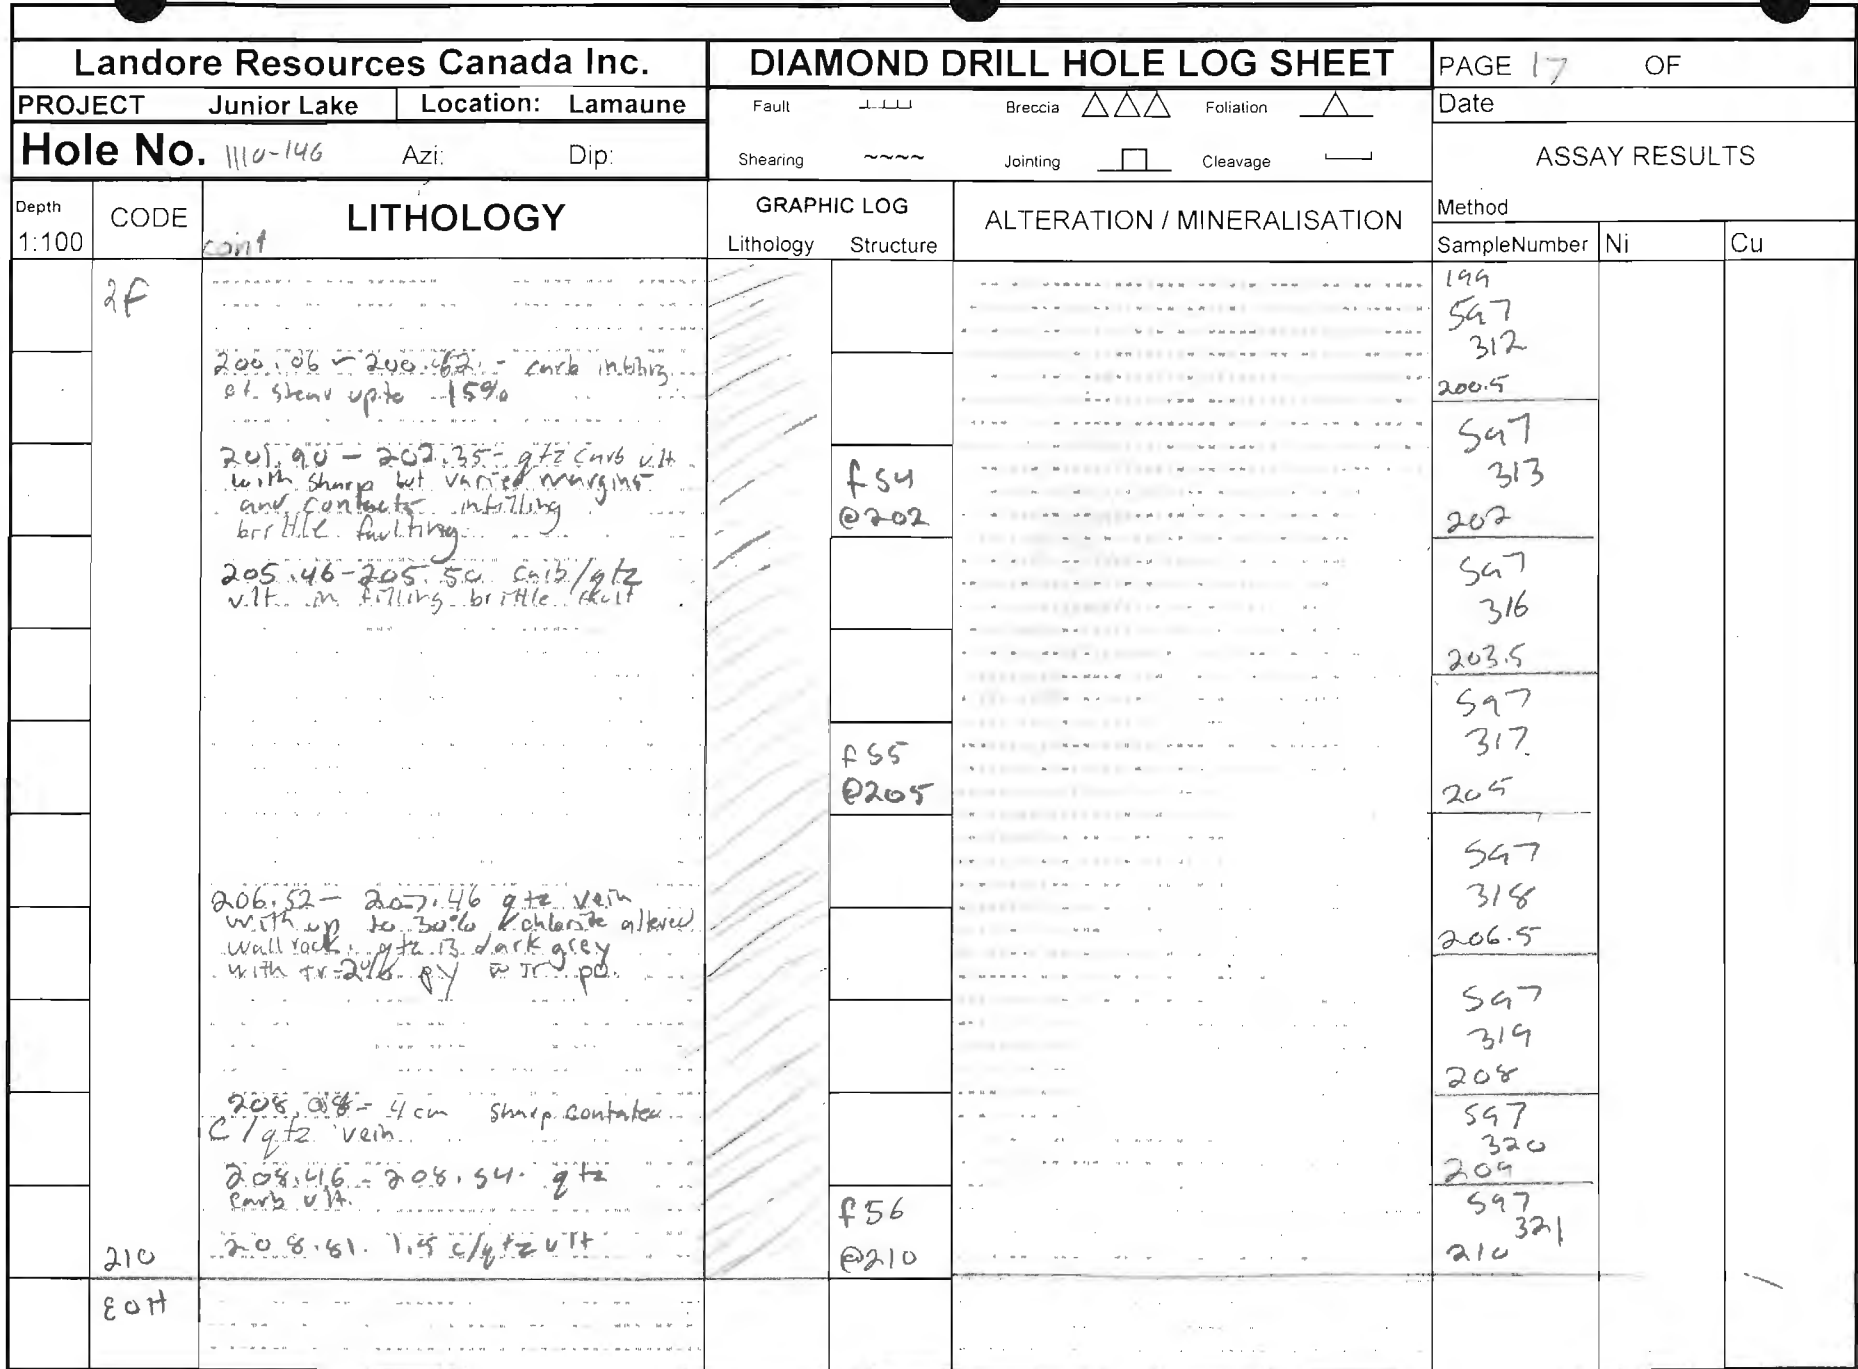 Landore Resources Canada Inc.
DIAMOND DRILL HOLE LOG SHEET
PAGE 17 OF
PROJECT Junior Lake Location: Lamaune
Fault Breccia Foliation
Date
Hole No. 1110-146 Azi: Dip:
Shearing Jointing Cleavage
ASSAY RESULTS
Depth
1:100
CODE
LITHOLOGY
cont
GRAPHIC LOG
Lithology Structure
ALTERATION / MINERALISATION
Method
SampleNumber Ni Cu
2f
200.06 - 200.62 - carb infilling
st. shear up to 15%
201.90 - 202.35 - qtz carb vlt
with sharp but varied margins
and contacts infilling
brittle faulting
205.46-205.50 carb/qtz
vlt in filling brittle fault
206.52 - 207.46 qtz vein
with up to 30% chlorite altered
wall rock. qtz is dark grey
with tr-2% py tr po.
208.08 - 4cm sharp contated
C/qtz vein
208.46 - 208.54 - qtz
carb vlt.
208.81. 1.5 c/qtz vlt
210
EOH
f54
@202
f55
@205
f56
@210
199
597
312
200.5
597
313
202
597
316
203.5
597
317
205
597
318
206.5
597
319
208
597
320
209
597
321
210